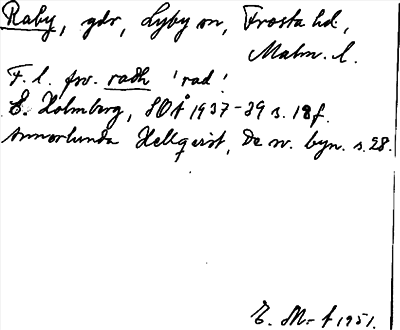 Raby, gdr, Lyby sn, Frosta hd,
Malm. l.
F. l. fsv. radh 'rad'.
E. Holmberg, SOÅ 1937-39 s. 18f.
Annorlunda Hellquist, De sv. byn. s. 28.
1951.